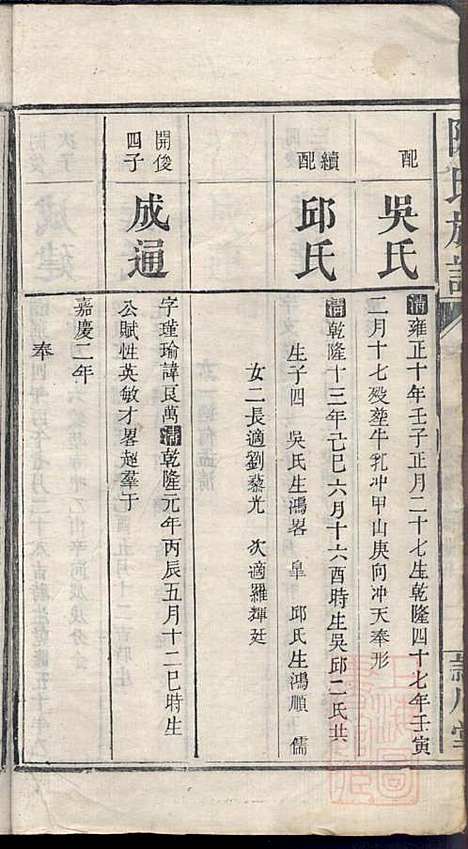 陳氏族譜
配
吳氏
清雍正十年壬子正月二十七生乾隆四十七年壬寅
二月十七殁塟牛乳冲甲山庚向冲天奉形
續配
邱氏
清乾隆十三年己巳六月十六酉時生吳邱二氏共
生子四 吳氏生鴻畧 皐 邱氏生鴻順 儒
女二長適劉藜光 次適羅輝廷
開俊
四子
成通
字瑾瑜諱良萬清乾隆元年丙辰五月十二巳時生
公賦性英敏才畧超羣于
嘉慶二年
奉